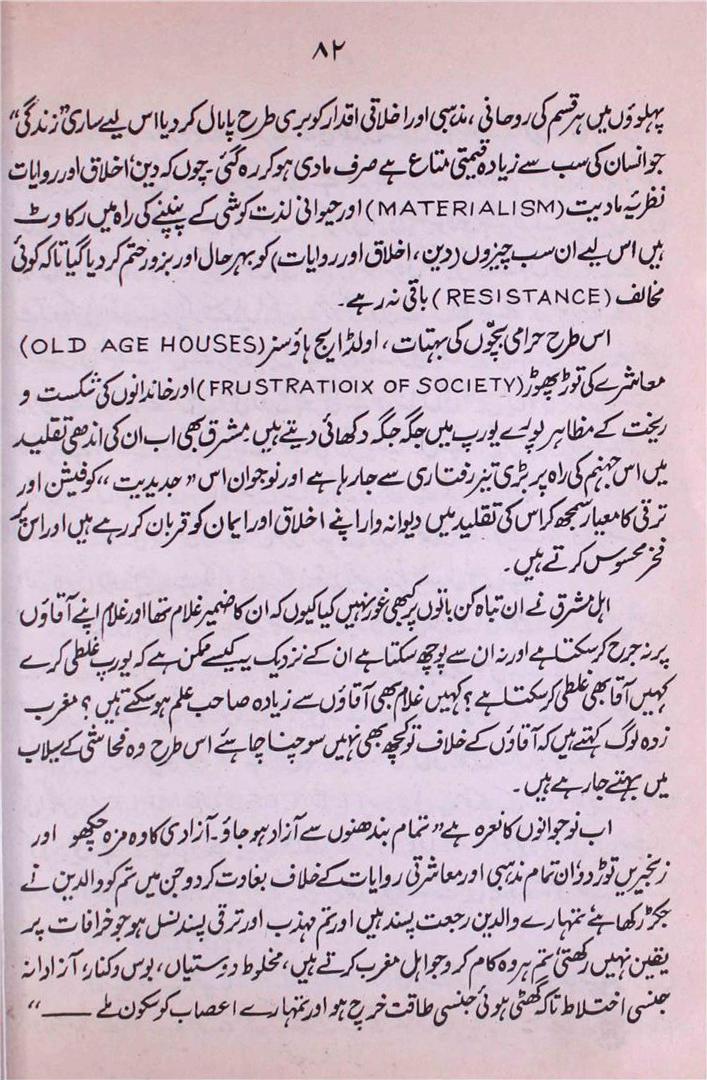 ۸۲
پہلوؤں میں ہر قسم کی روحانی ، مذہبی اور اخلاقی اقدار کو بری طرح پامال کر دیا اس لیے ساری ”زندگی“
جو انسان کی سب سے زیادہ قیمتی متاع ہے صرف مادی ہو کر رہ گئی۔ چوں کہ دین ، اخلاق اور روایات
نظریۂ مادیت (MATERIALISM) اور حیوانی لذت کوشی کے پنپنے کی راہ میں رکاوٹ
ہیں اس لیے ان سب چیزوں (دین ، اخلاق اور روایات) کو بہر حال اور بزور ختم کر دیا گیا تاکہ کوئی
مخالف (RESISTANCE) باقی نہ رہے۔
اس طرح حرامی بچّوں کی بہتات ، اولڈ ایج ہاؤسنز (OLD AGE HOUSES)
معاشرے کی توڑ پھوڑ (FRUSTRATIOIX OF SOCIETY) اور خاندانوں کی شکست و
ریخت کے مظاہر پورے یورپ میں جگہ جگہ دکھائی دیتے ہیں۔ مشرق بھی اب ان کی اندھی تقلید
میں اس جہنم کی راہ پر بڑی تیز رفتاری سے جا رہا ہے اور نوجوان اس ”جدیدیت“ کو فیشن اور
ترقی کا معیار سمجھ کر اس کی تقلید میں دیوانہ وار اپنے اخلاق اور ایمان کو قربان کر رہے ہیں اور اس پر
فخر محسوس کرتے ہیں۔
اہل مشرق نے ان تباہ کن باتوں پر کبھی غور نہیں کیا کیوں کہ ان کا ضمیر غلام تھا اور غلام اپنے آقاؤں
پر نہ جرح کر سکتا ہے اور نہ ان سے پوچھ سکتا ہے ان کے نزدیک یہ کیسے ممکن ہے کہ یورپ غلطی کرے
کہیں آقا بھی غلطی کر سکتا ہے ؟ کہیں غلام بھی آقاؤں سے زیادہ صاحب علم ہو سکتے ہیں ؟ مغرب
زدہ لوگ کہتے ہیں کہ آقاؤں کے خلاف تو کچھ بھی نہیں سوچنا چاہئے اس طرح وہ فحاشی کے سیلاب
میں بہتے جا رہے ہیں۔
اب نوجوانوں کا نعرہ ہے ”تمام بندھنوں سے آزاد ہو جاؤ۔ آزادی کا وہ مزہ چکھو اور
زنجیریں توڑ دو، ان تمام مذہبی اور معاشرتی روایات کے خلاف بغاوت کر دو جن میں تم کو والدین نے
جکڑ رکھا ہے ، تمہارے والدین رجعت پسند ہیں اور تم مہذب اور ترقی پسند نسل ہو جو خرافات پر
یقین نہیں رکھتی، تم ہر وہ کام کرو جو اہل مغرب کرتے ہیں ، مخلوط دوستیاں ، بوس و کنار ، آزادانہ
جنسی اختلاط تاکہ گھٹی ہوئی جنسی طاقت خرچ ہو اور تمہارے اعصاب کو سکون ملے ــــــ “